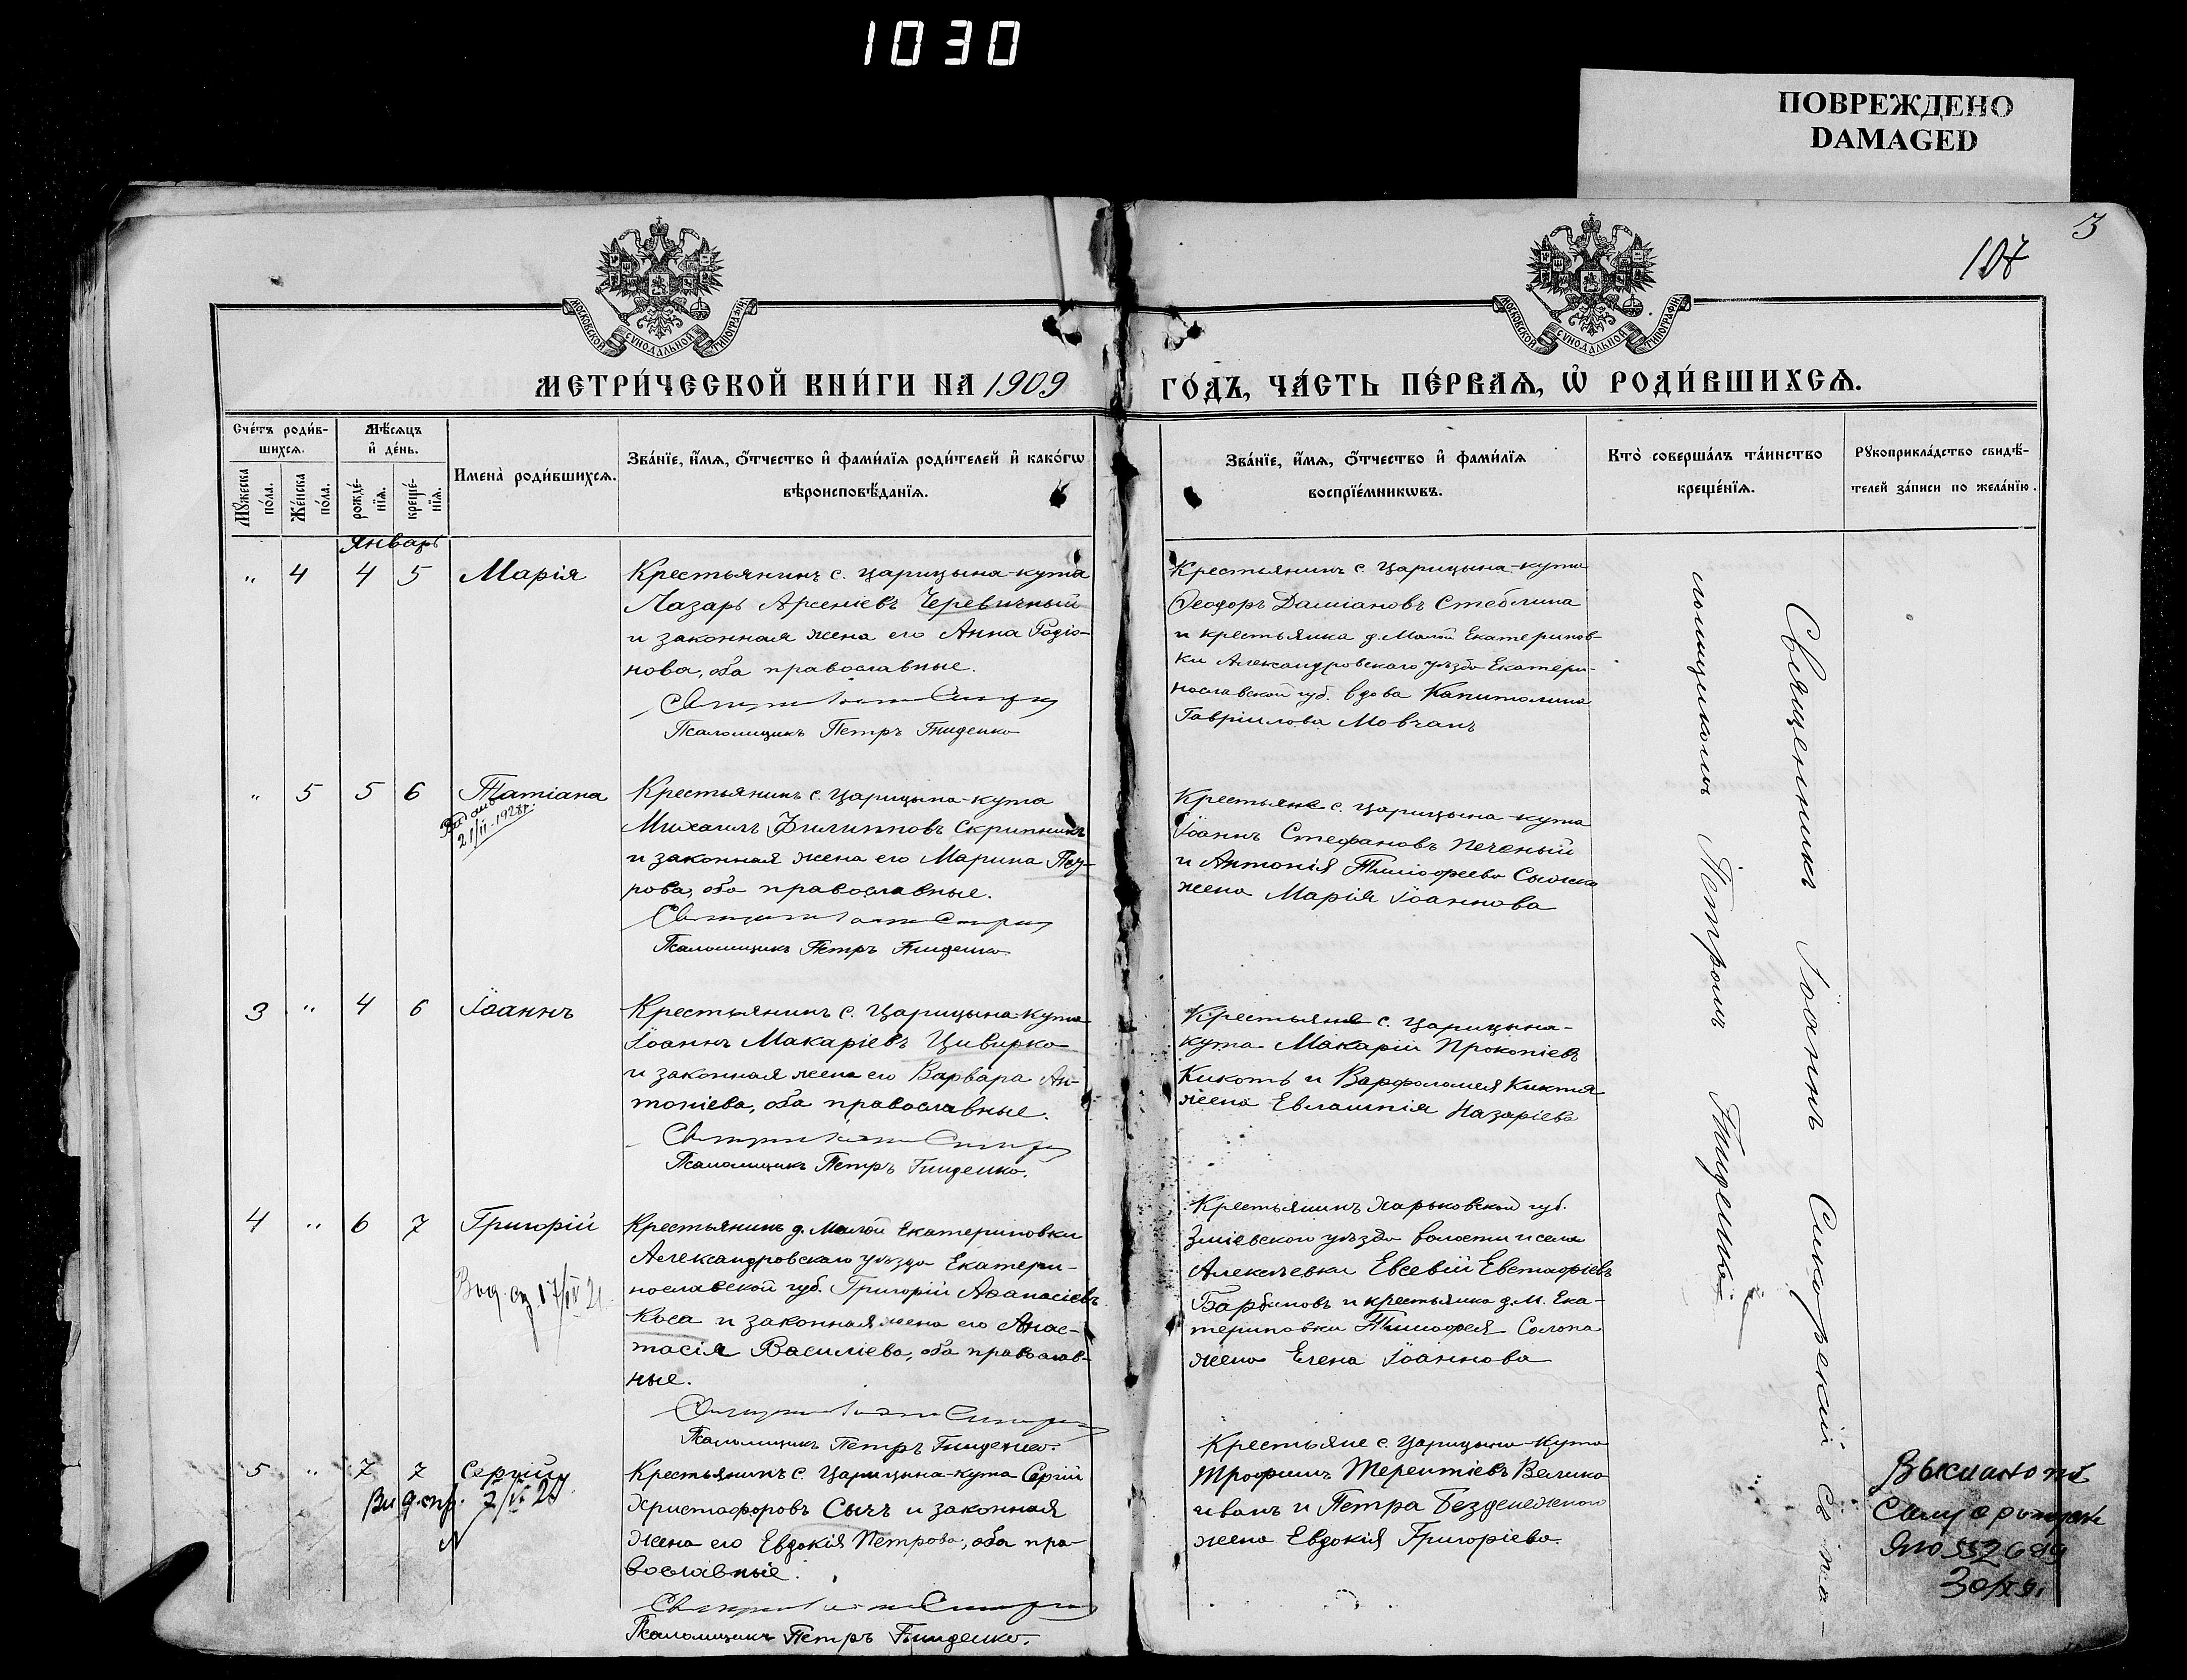 1030
ПОВРЕЖДЕНО
DAMAGED
3
107
МОСКОВСКОЙ СѴНОДАЛЬНОЙ ТИПОГРАФІИ
МОСКОВСКОЙ СѴНОДАЛЬНОЙ ТИПОГРАФІИ
МЕТРИ́ЧЕСКОЙ КНИ́ГИ НА 1909
ГО́ДЪ, ЧА́СТЬ ПЕ́РВАѦ, Ѽ РОДИ́ВШИХСѦ.
Сче́тъ роди́в-
шихсѧ.
Мꙋ́жеска
по́ла.
Же́нска
по́ла.
Мѣ́сяцъ
и҆ де́нь.
рожде́-
нїѧ.
креще́-
нїѧ.
Имена̀ роди́вшихсѧ.
Зва́нїе, и҆́мѧ, ѻ҆́тчество и҆ фами́лїѧ роди́телей и҆ како́гѡ
вѣроисповѣ́данїѧ.
Зва́нїе, и҆́мѧ, ѻ҆́тчество и҆ фами́лїѧ
воспрїе́мникѡвъ.
Кто̀ соверша́лъ та́инство
креще́нїѧ.
Рꙋкоприкла́дство свидѣ́-
телей за́писи по жела́нїю.
Январь
" 4 4 5 Марія
Крестьянинъ с. Царицына-кута
Лазарь Арсеніевъ Черевичный
и законная жена его Анна Родіо-
нова, оба православные.
Псаломщикъ Петръ Гниденко
Крестьянинъ с. Царицына-кута
Ѳеодоръ Даміановъ Стеблина
и крестьянка д. Малой Екатеринов-
ки Александровскаго уѣзда Екатери-
нославской губ. вдова Капитолина
Гавріилова Мовчанъ
" 5 5 6 Татіана
21/II.1928г.
Крестьянинъ с. Царицына-кута
Михаилъ Филипповъ Скрипникъ
и законная жена его Марина Пет-
рова, оба православные.
Псаломщикъ Петръ Гниденко
Крестьяне с. Царицына-кута
Іоаннъ Стефановъ Печеный
и Антонія Тимоѳеева
жена Марія Іоаннова
3 " 4 6 Іоаннъ
Крестьянинъ с. Царицына-кута
Іоаннъ Макаріевъ Цивирко
и законная жена его Варвара Ан-
тоніева, оба православные.
Псаломщикъ Петръ Гниденко.
Крестьяне с. Царицына-
кута Макарій Прокопіевъ
Кикоть и Варфоломея Киктя
жена Евлампія Назаріева
4 " 6 7 Григорій
17/IV 21
Крестьянинъ д. Малой Екатериновки
Александровскаго уѣзда Екатери-
нославской губ. Григорій Аѳанасіевъ
Коса и законная жена его Анас-
тасія Василіева, оба православ-
ные.
Псаломщикъ Петръ Гниденко.
Крестьянинъ Харьковской губ.
Зміевскаго уѣзда волости и села
Алексѣевки Евсевій Евстафіевъ
Барбиновъ и крестьянка д. М. Ека-
териновки Тимоѳея Солопа
жена Елена Іоаннова
5 " 7 7 Сергій
Выд. спр. 7/VI 20
Крестьянинъ с. Царицына-кута Сергій
Христофоровъ Сычъ и законная
жена его Евдокія Петрова, оба пра-
вославные.
Псаломщикъ Петръ Гниденко.
Крестьяне с. Царицына-кута
Трофимъ Терентіевъ Велико-
иванъ и Петра Безденежнаго
жена Евдокія Григоріева
Священникъ Іоаннъ Сикорскій съ пса-
ломщикомъ Петромъ Гниденкой